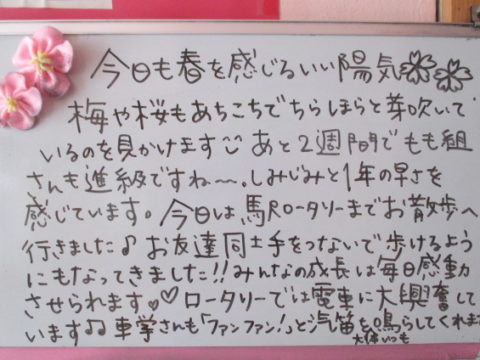 今日も春を感じるいい陽気
梅や桜もあちこちでちらほらと芽吹いて
いるのを見かけます あと2週間でもも組
さんも進級ですね〜。しみじみと1年の早さを
感じています。今日は馬尺ロータリーまでお散歩へ
行きました♪お友達同士手をつないで歩けるよう
にもなってきました!!みんなの成長は毎日感動
させられます。♡ロータリーでは電車に大興奮して
います♫車掌さんも「ファンファン!」と汽笛を鳴らしてくれます
大体いつも